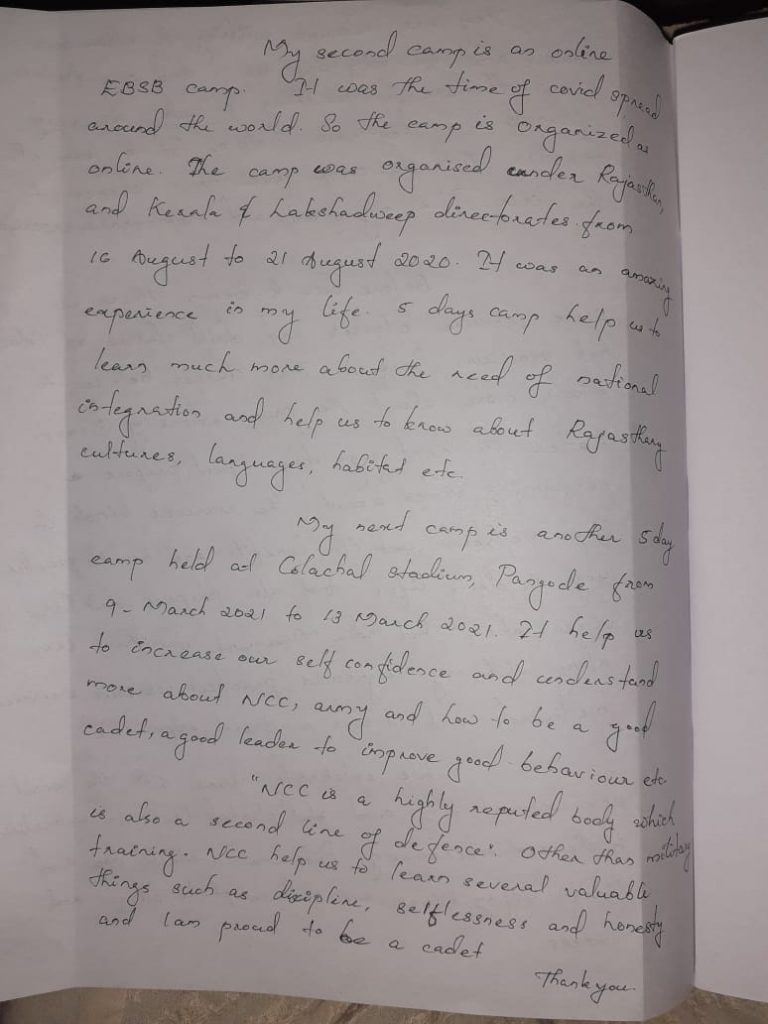 My second camp is an online
EBSB camp. It was the time of covid spread
around the world. So the camp is organized as
online. The camp was organised under Rajasthan,
and Kerala & Lakshadweep directorates from
16 August to 21 August 2020. It was an amazing
experience in my life. 5 days camp help us to
learn much more about the need of national
integration and help us to know about Rajasthany
cultures, languages, habitat etc.
My next camp is another 5 day
camp held at Colachal stadium, Pangode from
9 - March 2021 to 13 March 2021. It help us
to increase our self confidence and understand
more about NCC, army and how to be a good
cadet, a good leader to improve good behaviour etc
"NCC is a highly reputed body which
is also a second line of defence". Other than military
training. NCC help us to learn several valuable
things such as discipline, selflessness and honesty
and I am proud to be a cadet
Thank you.